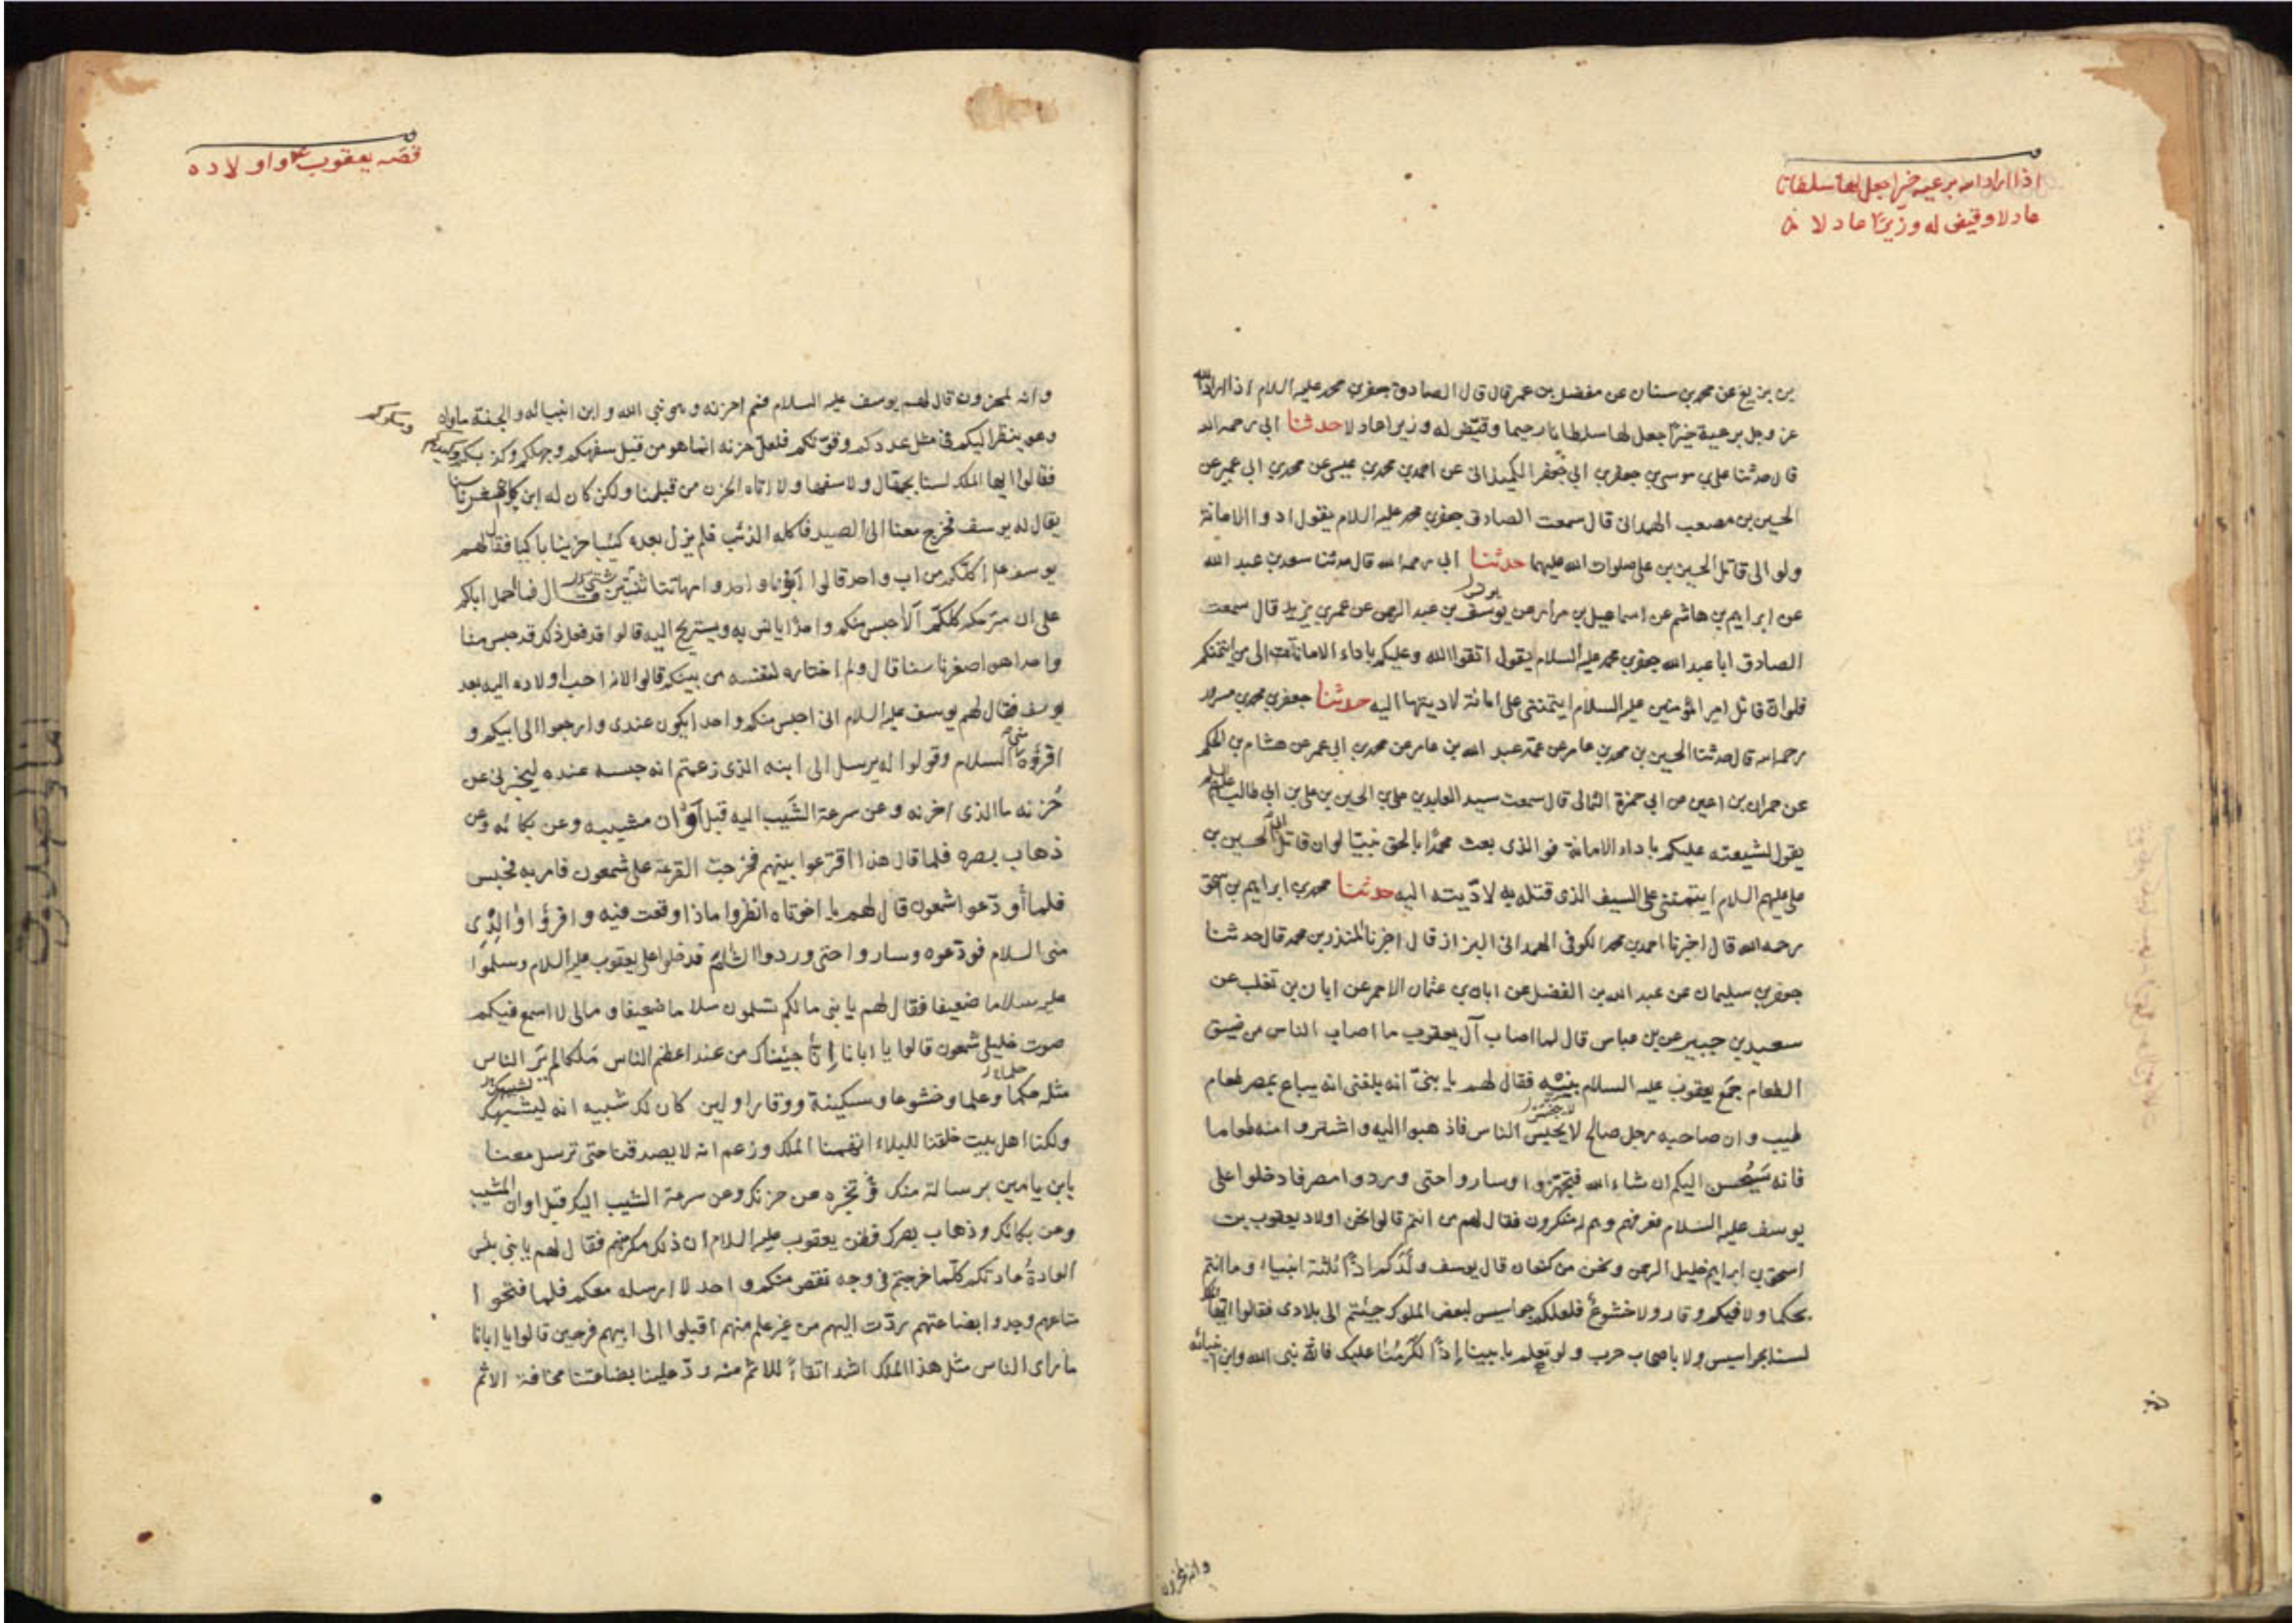 اذا اراد الله برعية خيرا جعل لها سلطانا
عادلا وقيض له وزيرا عادلا
بن بزيع عن محمد بن سنان عن مفضل بن عمر قال قال الصادق جعفر بن محمد عليه السلام اذا اراد الله
عز وجل برعية خيرًا جعل لها سلطانا رحيما وقيّض له وزيرا عادلا حدثنا ابي رحمه الله
قال حدثنا علي بن موسى بن جعفر بن ابي جعفر الكميداني عن احمد بن محمد بن عيسى عن محمد بن ابي عمير عن
الحسين بن مصعب الهمداني قال سمعت الصادق جعفر بن محمد عليه السلام يقول ادوا الامانة
ولو الى قاتل الحسين بن علي صلوات الله عليهما حدثنا ابي رحمه الله قال حدثنا سعد بن عبد الله
عن ابراهيم بن هاشم عن اسماعيل بن مرار عن يوسف بن عبد الرحمن عن عمر بن يزيد قال سمعت
الصادق ابا عبد الله جعفر بن محمد عليه السلام يقول اتقوا الله وعليكم باداء الامانات الى من ائتمنكم
فلو ان قاتل امير المؤمنين عليه السلام ايتمنني على امانة لاديتها اليه حدثنا جعفر بن محمد بن مسرور
رحمه الله قال حدثنا الحسين بن محمد بن عامر عن عمه عبد الله بن عامر عن محمد بن ابي عمير عن هشام بن الحكم
عن حمران بن اعين عن ابي حمزة الثمالي قال سمعت سيد العابدين علي بن الحسين بن علي بن ابي طالب عليهم السلام
يقول لشيعته عليكم باداء الامانة فو الذي بعث محمدًا بالحق نبيّا لو ان قاتل ابي الحسين بن
علي عليهم السلام ايتمنني على السيف الذي قتله به لادّيته اليه حدثنا محمد بن ابراهيم بن اسحق
رحمه الله قال اخبرنا احمد بن محمد الكوفي الهمداني البزاز قال اخبرنا المنذر بن محمد قال حدثنا
جعفر بن سليمان عن عبد الله بن الفضل عن ابان بن عثمان الاحمر عن ابان بن تغلب عن
سعيد بن جبير عن بن عباس قال لما اصاب آل يعقوب ما اصاب الناس من ضيق
الطعام جمع يعقوب عليه السلام بنيه فقال لهم يا بنىّ انه بلغني انه يباع بمصر طعام
طيب وان صاحبه رجل صالح لا يحبس الناس فاذهبوا اليه واشتروا منه طعاما
فانه سَيُحسن اليكم ان شاء الله فتجهزوا وساروا حتى وردوا مصر فادخلوا على
يوسف عليه السلام فعرفهم وهم له منكرون فقال لهم من انتم قالوا نحن اولاد يعقوب بن
اسحق بن ابراهيم خليل الرحمن ونحن من كنعان قال يوسف ولدكم اذًا ثلثة انبياء وما انتم
بحكما ولا فيكم وقار ولا خشوع فلعلكم جواسيس لبعض الملوك جئتم الى بلادي فقالوا ايها الملك
لسنا بجواسيس ولا باصحاب حرب ولو تعلم بابينا إذًا لكَرُمْنا عليك فانه نبي الله وابن انبيائه
وانه لمحزون
قصّه يعقوب ع واولاده
وانه لمحزون قال لهم يوسف عليه السلام فمم احزنه وهو نبي الله وابن انبيائه والجنة ماواه
وهو ينظر اليكم في مثل عددكم وقوتكم فلعلّ حزنه انما هو من قبل سفهكم وجهلكم وكذبكم وكيدكم
فقالوا ايها الملك لسنا بجهال ولا سفها ولا اتاه الحزن من قبلنا ولكن كان له ابن كان اصغرنا سنا
يقال له يوسف فخرج معنا الى الصيد فاكله الذئب فلم يزل بعده كئيبا حزينا باكيا فقال لهم
يوسف ع اكلكم من اب واحد قالوا ابونا واحد وامهاتنا شتى قال فما حمل اباكم
على ان سرّحكم كلكم ألاّ حبس منكم واحدًا يانس به ويستريح اليه قالوا قد فعل ذلك قد حبس منا
واحدا هو اصغرنا سنا قال ولم اختاره لنفسه من بينكم قالوا لانه احب اولاده اليه بعد
يوسف فقال لهم يوسف عليه السلام اني احبس منكم واحدا يكون عندي وارجعوا الى ابيكم و
اقرؤه مني السلام وقولوا له يرسل الى ابنه الذي زعمتم انه حبسه عنده ليخبرني عن
حُزنه ما الذي احزنه وعن سرعة الشَيب اليه قبل أوان مشيبه وعن بكائه وعن
ذهاب بصره فلما قال هذا اقترعوا بينهم فخرجت القرعة على شمعون فامر به فحبس
فلما أودّعوا شمعون قال لهم يا اخوتاه انظروا ماذا وقعت فيه واقرؤا والدي
مني السلام فودّعوه وساروا حتى وردوا الشام فدخلوا على يعقوب عليه السلام وسلموا
عليه سلاما ضعيفا فقال لهم يا بني مالكم تسلمون سلاما ضعيفا ومالي لا اسمع فيكم
صوت خليلي شمعون قالوا يا ابانا إنا جيئناك من عند اعظم الناس مَلكا لم يَر الناس
مثله حكما وعلما وخشوعا وسكينة ووقارا ولئن كان لك شبيه انه ليشبهك
ولكنا اهل بيت خلقنا للبلاء اتهمنا الملك وزعم انه لا يصدقنا حتى ترسل معنا
بابن يامين برسالة منك تخبره عن حزنك وعن سرعة الشيب اليك قبل اوان المشيب
وعن بكائك وذهاب بصرك فظن يعقوب عليه السلام ان ذلك مكر منهم فقال لهم يا بني بئس
العادة عادتكم كلّما خرجتم في وجه نقص منكم واحد لا ارسله معكم فلما فتحوا
متاعهم وجدوا بضاعتهم ردّت اليهم من غير علم منهم اقبلوا الى ابيهم فرحين قالوا يا ابانا
ما راى الناس مثل هذا الملك اشد اتقاءً للاثم منه ردّ علينا بضاعتنا مخافة الاثم